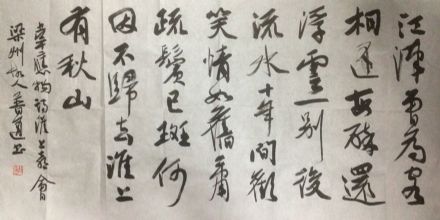 江漢曾為客
相逢每醉還
浮雲一别後
流水十年間歡
笑情如舊蕭
疏鬢已斑何
因不歸去淮上
有秋山
韋應物詩淮上喜會
梁州故人書